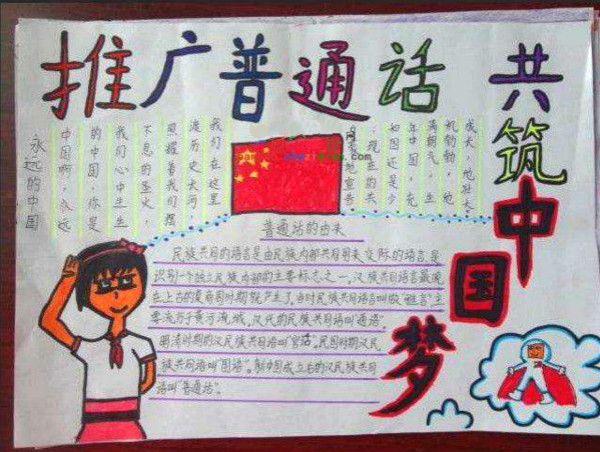 推广普通话 共筑
中国梦
我们在这里，
追历史大河，
照耀着我们摆
不息的圣火，
我们心中生生
的中国，你是
中国啊，永远
永远的中国
成长，他壮大，
机勃勃，他
满朝气，生
年中国，充
如困还是少
：现在的共
地宣告
普通话的由来
民族共同的语言是由民族内部共同用来交际的语言，是
识别一个独立民族内部的主要标志之一。汉族共同语言最晚
在上古的夏商周时期就产生了，当时民族共同语言叫做“雅言”主
要流行于黄河流域。汉代的民族共同语叫“通语”。
明清时期的汉民族共同语叫“官话”。民国时期汉民
族共同语叫“国语”。新中国成立后的汉民族共同
语叫“普通话”。